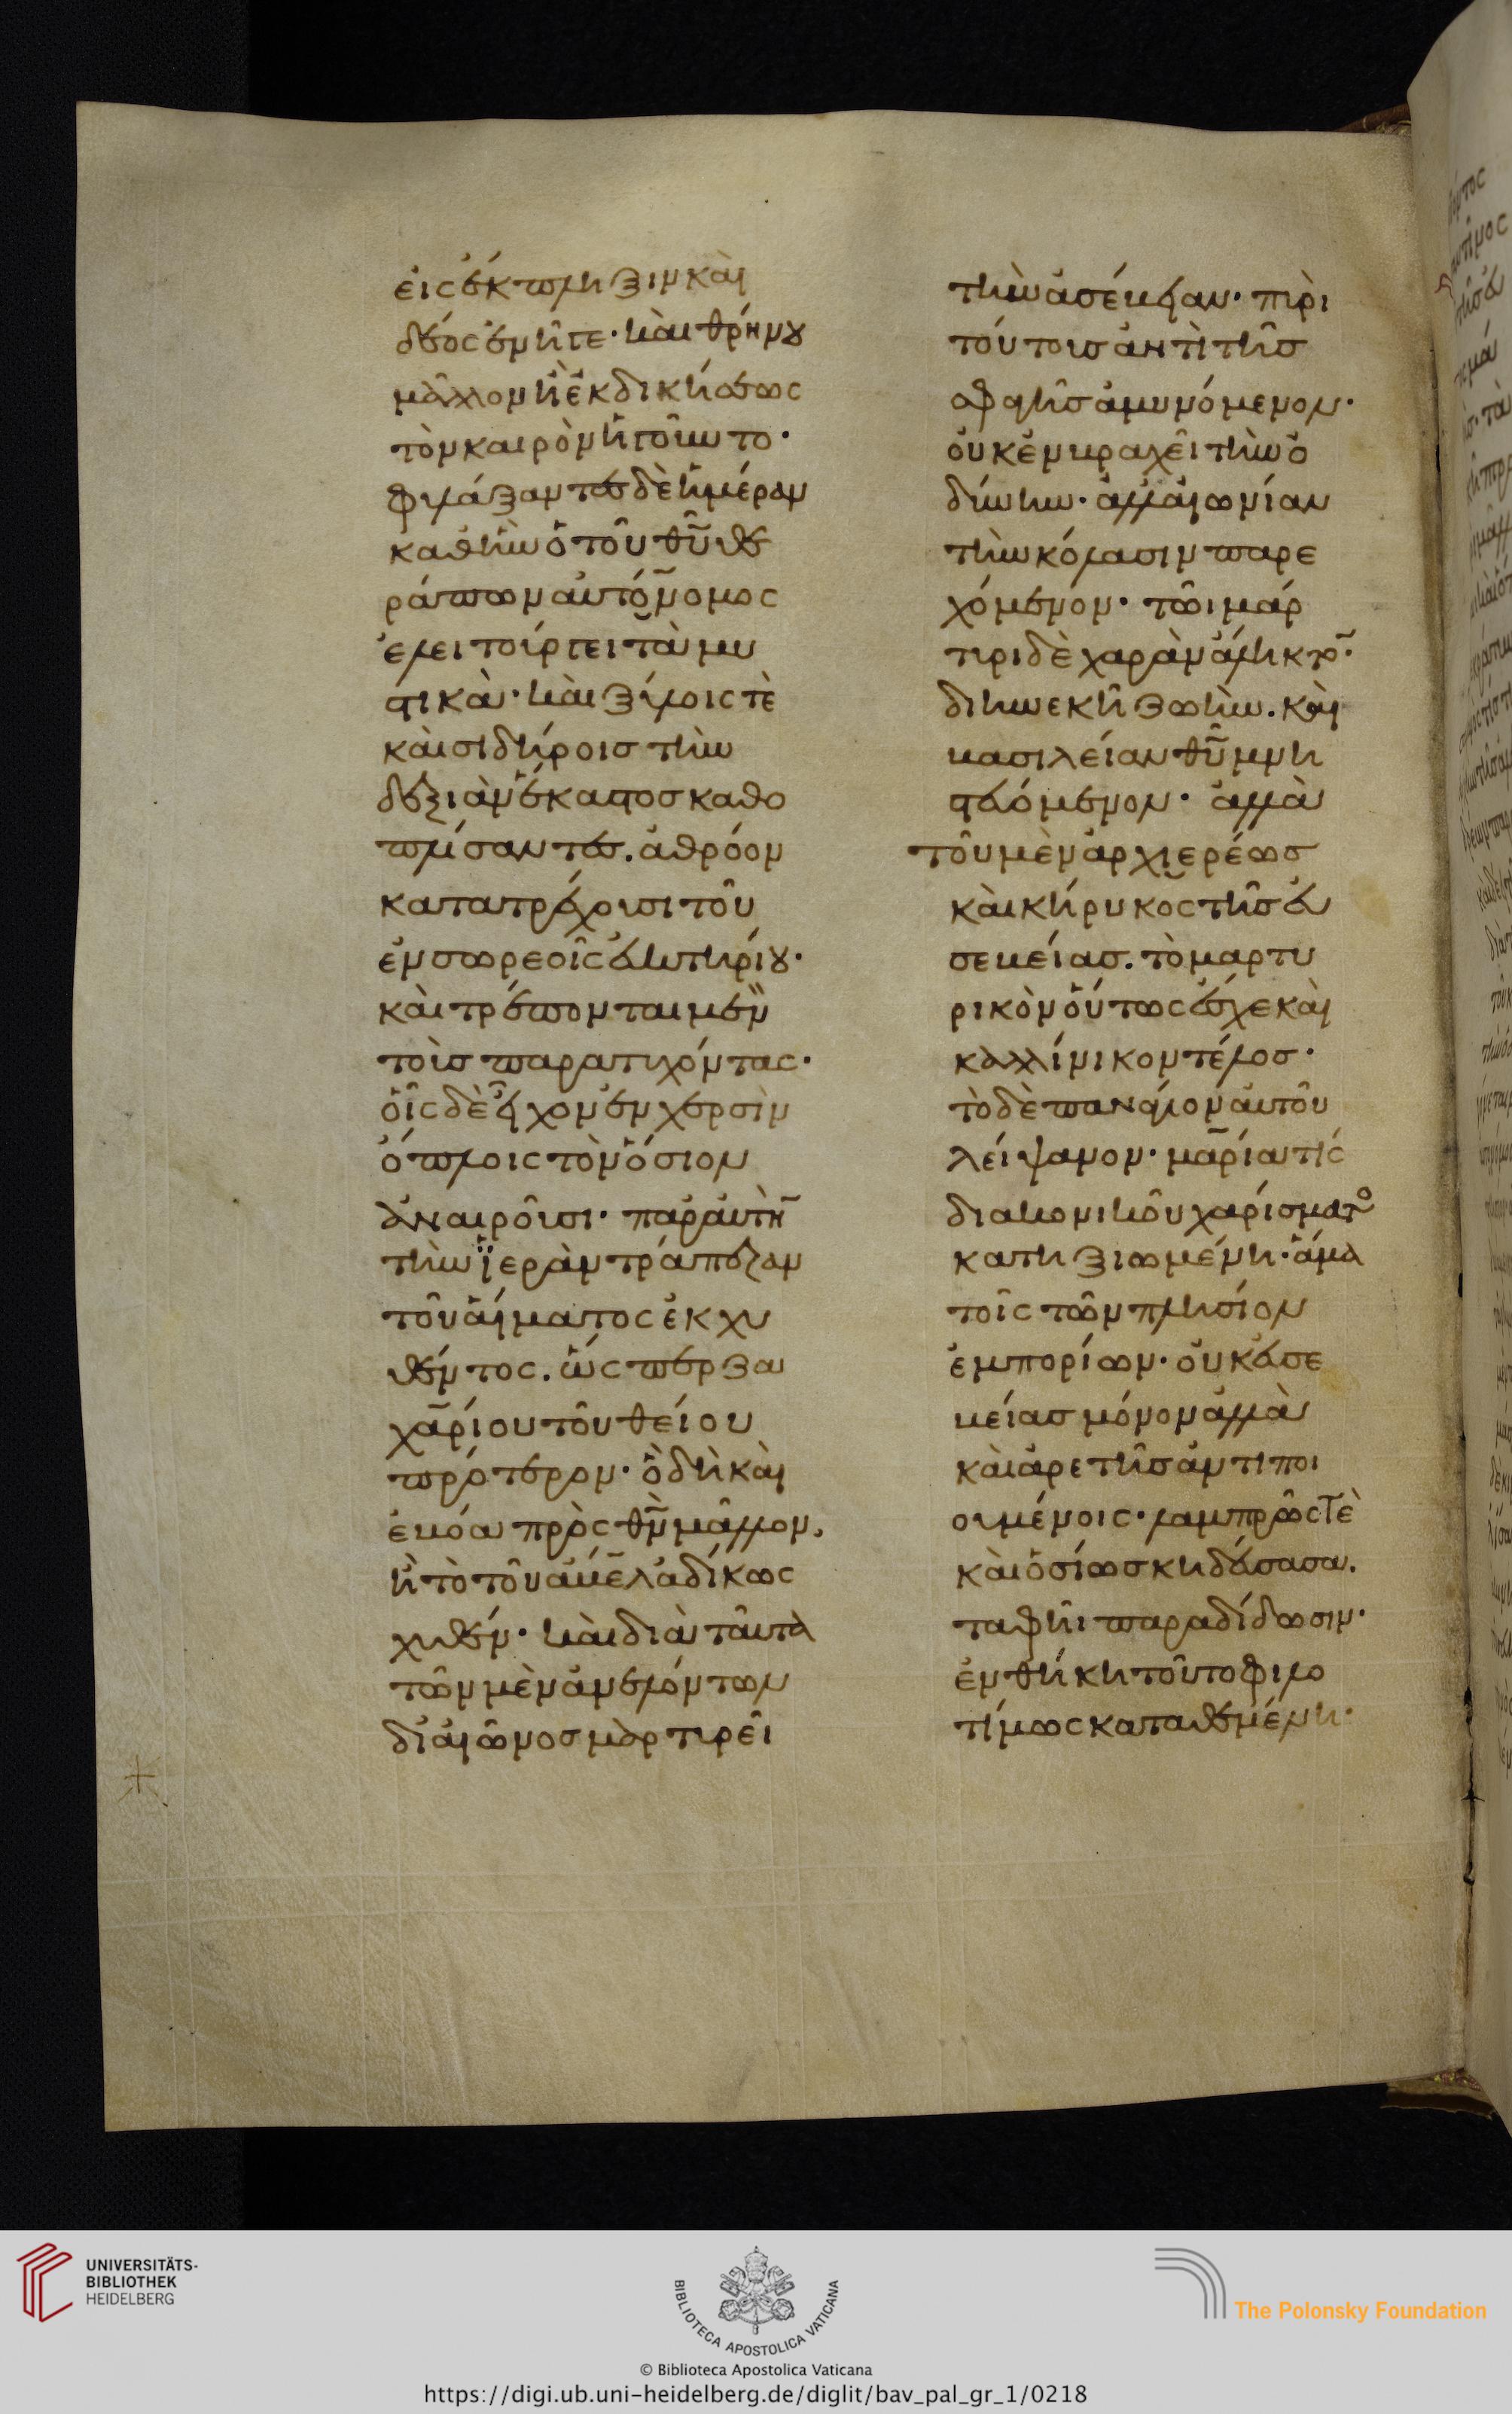 εἰς ἔκπληξιν καὶ
δέος ἐνῆγε· καὶ θρήνου
μᾶλλον ἢ ἐκδικήσεως
τὸν καιρὸν ἡγοῦντο·
φυλάξαντες δὲ ἡμέραν
καθ' ἣν ὁ τοῦ θῦ θε
ράπων αὐτόνομος
ἐλειτούργει τὰ μυ
στικὰ· καὶ ξύλοις τὲ
καὶ σιδήροις τὴν
δεξιὰν ἕκαστος καθο
πλίσαντες. ἀθρόον
κατατρέχουσι τοῦ
ἐν σωρεοῖς εὐκτηρίου·
καὶ τρέπονται μὲν
τοὺς παρατυχόντας·
οἷς δὲ εἶχον ἐν χερσὶν
ὅπλοις τὸν ὅσιον
ἀναιροῦσι· παρ' αὐτὴν
τὴν ἱερὰν τράπεζαν
τοῦ αἵματος ἐκχυ
θέντος. ὥσπερ ζα
χαρίου τοῦ θείου
πρότερον· ὃ δὴ καὶ
ἐβόα πρὸς θν μᾶλλον,
ἢ τὸ τοῦ ἄβελ ἀδίκως
χυθέν· καὶ διὰ ταῦτα
τῶν μὲν ἀνελόντων
δι' αἰῶνος μαρτυρεῖ
τὴν ἀσέβειαν· πυρὶ
τούτοις ἀντὶ τῆς
σφαγῆς ἀμυνόμενον·
οὐκ ἐν βραχεῖ τὴν ὀ
δύνην· ἀλλ' αἰωνίαν
τὴν κόλασιν παρε
χόμενον· τῶι μάρ
τυρι δὲ χαρὰν ἄληκτον·
διηνεκῆ ζωὴν. καὶ
βασιλείαν θῦ μνη
στευόμενον· ἀλλὰ
τοῦ μὲν ἀρχιερέως
καὶ κήρυκος τῆς εὐ
σεβείας. τὸ μαρτυ
ρικὸν οὕτως ἔσχε καὶ
καλλίνικον τέλος·
τὸ δὲ πανάγιον αὐτοῦ
λείψανον· μαρία τις
διακονικοῦ χαρίσματος
κατηξιωμένη· ἅμα
τοῖς τῶν πλησίον
ἐμπορίων· οὐκ εὐσε
βείας μόνον ἀλλὰ
καὶ ἀρετῆς ἀντιποι
ουμένοις· λαμπρῶς τὲ
καὶ ὁσίως κηδεύσασα.
ταφῆι παραδίδωσιν·
ἐν θήκη τοῦτο φιλο
τίμως καταθεμένη·
UNIVERSITÄTS-
BIBLIOTHEK
HEIDELBERG
BIBLIOTECA APOSTOLICA VATICANA
The Polonsky Foundation
© Biblioteca Apostolica Vaticana
https://digi.ub.uni-heidelberg.de/diglit/bav_pal_gr_1/0218